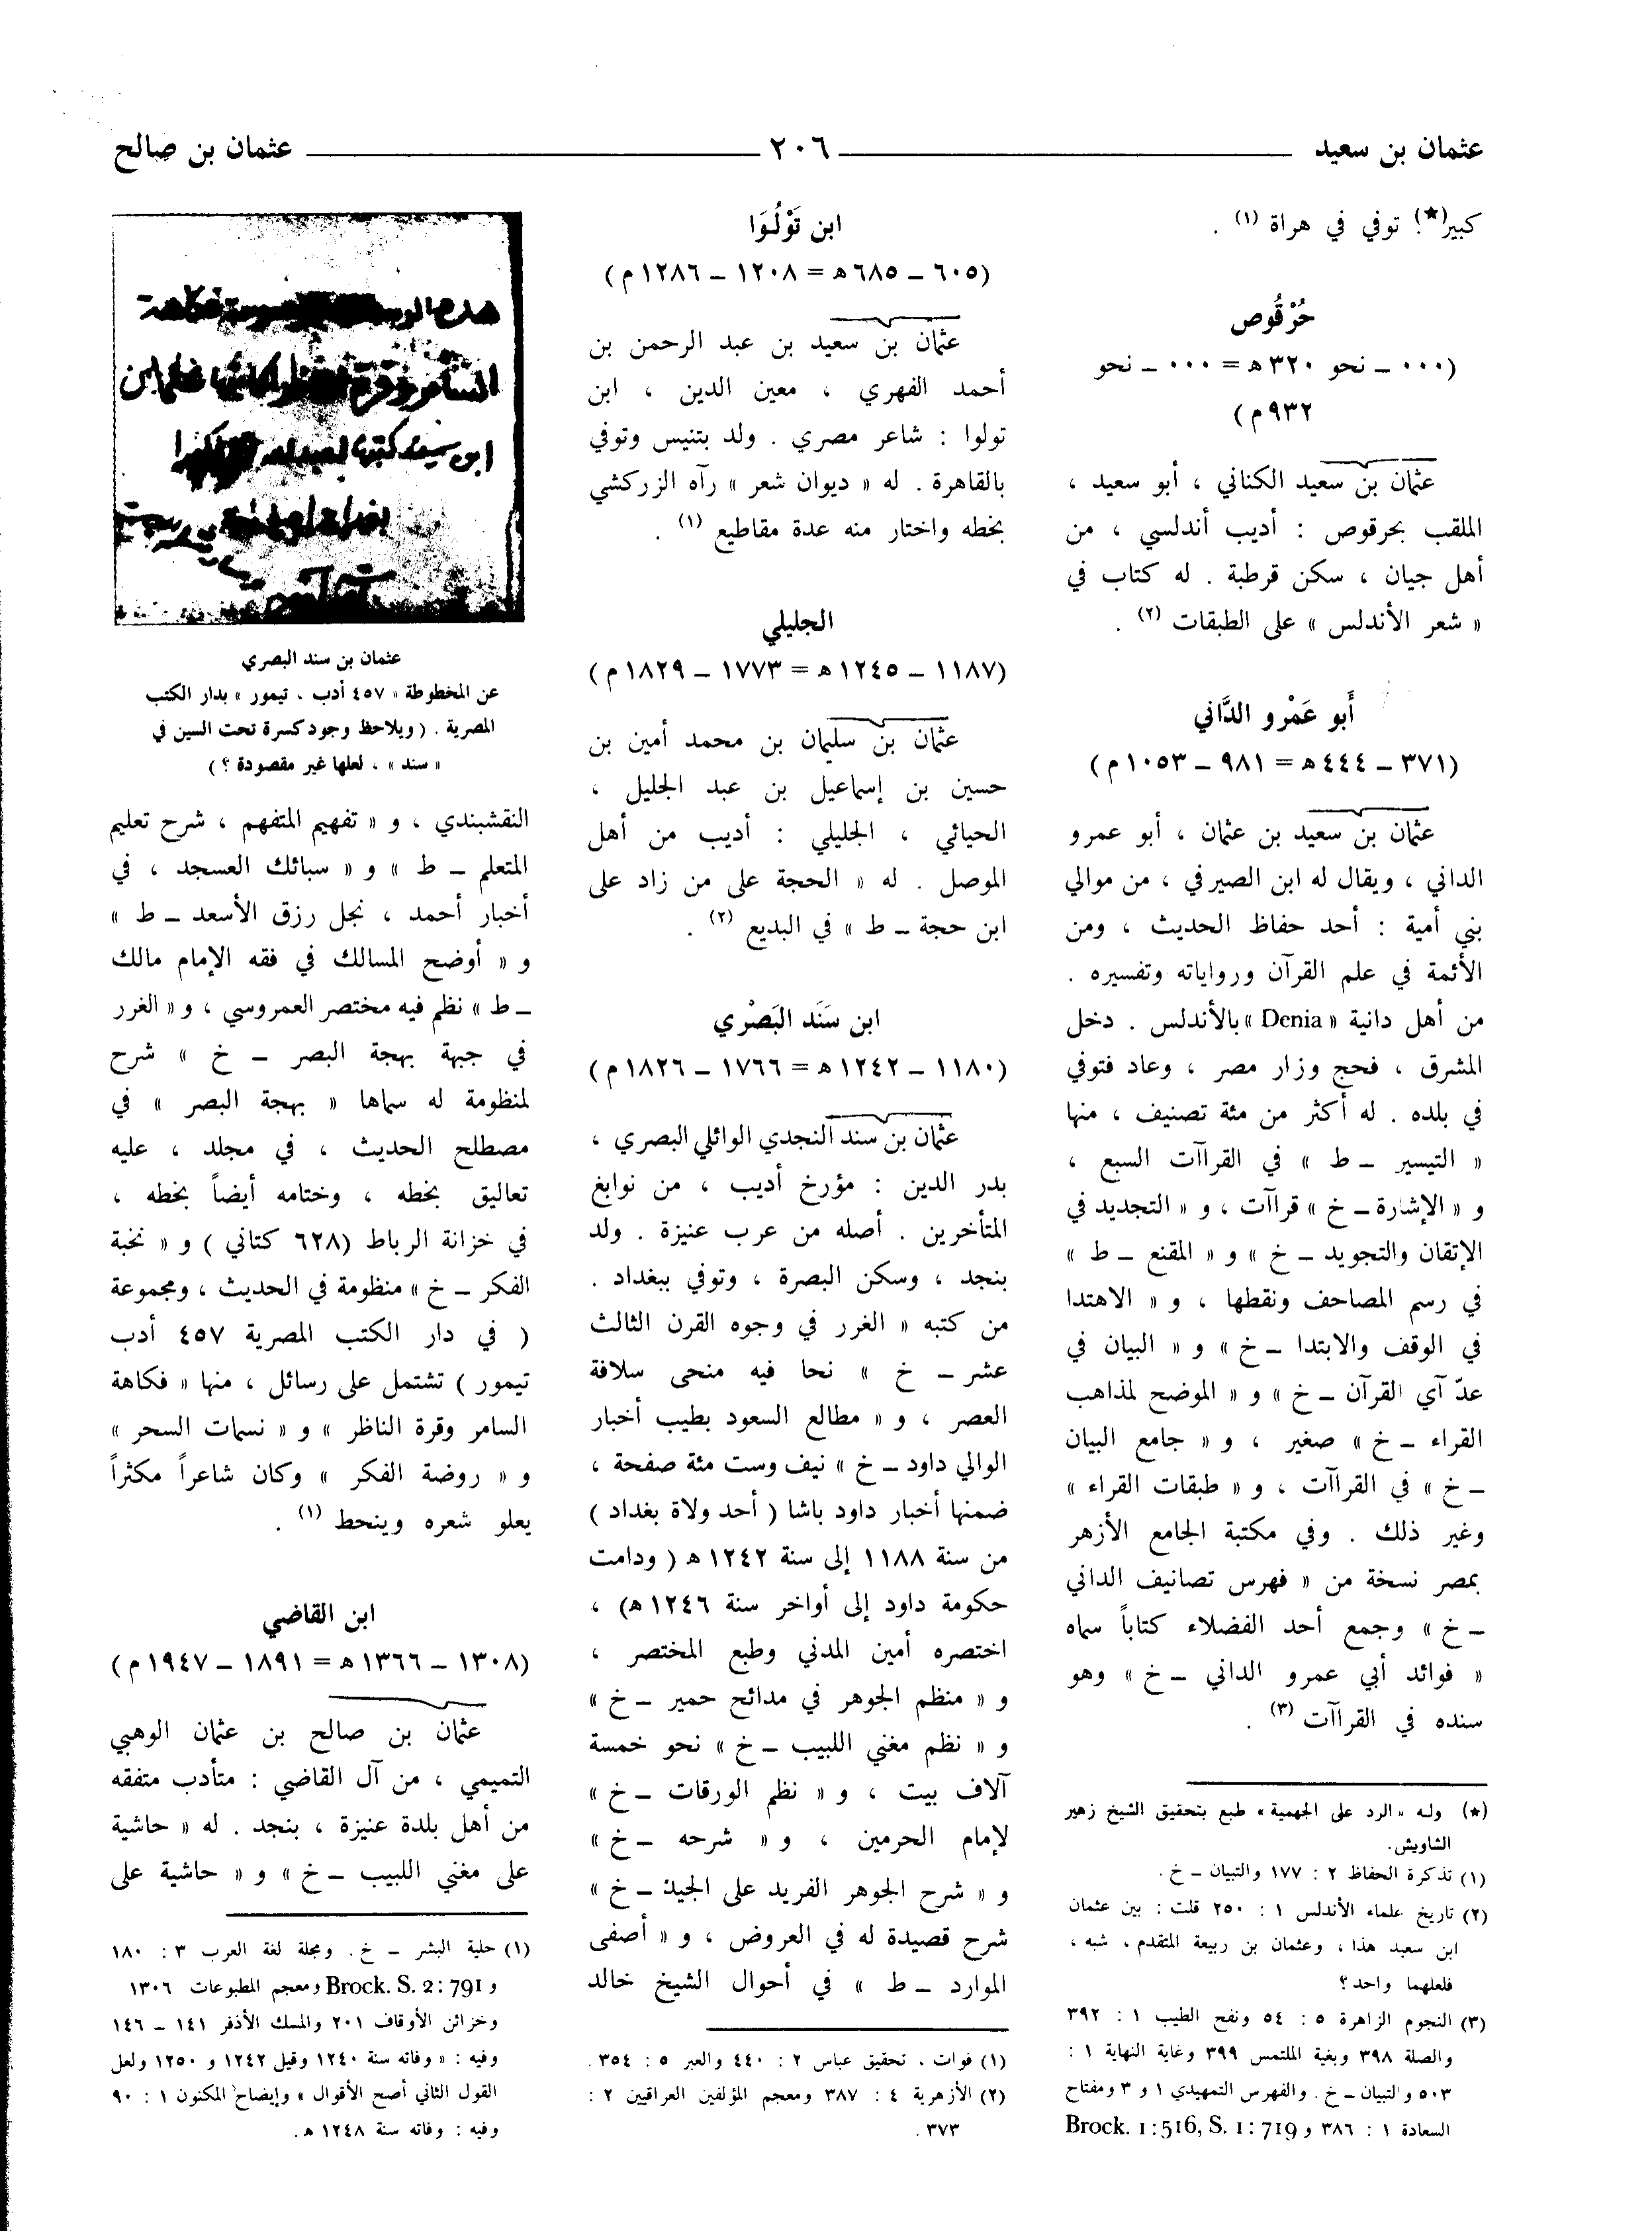 عثمان بن سعيد ٢٠٦ عثمان بن صالح
كبير(★)؛ توفي في هراة (١) .
حُرْقُوص
(٠٠٠ ــ نحو ٣٢٠ ه = ٠٠٠ ــ نحو
٩٣٢ م)
عثمان بن سعيد الكناني ، أبو سعيد ،
الملقب بحرقوص : أديب أندلسي ، من
أهل جيان ، سكن قرطبة . له كتاب في
« شعر الأندلس » على الطبقات (٢) .
أَبو عَمْرو الدَّاني
(٣٧١ ــ ٤٤٤ ه = ٩٨١ ــ ١٠٥٣ م)
عثمان بن سعيد بن عثمان ، أبو عمرو
الداني ، ويقال له ابن الصيرفي ، من موالي
بني أمية : أحد حفاظ الحديث ، ومن
الأئمة في علم القرآن ورواياته وتفسيره .
من أهل دانية « Denia » بالأندلس . دخل
المشرق ، فحج وزار مصر ، وعاد فتوفي
في بلده . له أكثر من مئة تصنيف ، منها
« التيسير ــ ط » في القراآت السبع ،
و « الإشارة ــ خ » قراآت ، و « التجديد في
الإتقان والتجويد ــ خ » و « المقنع ــ ط »
في رسم المصاحف ونقطها ، و « الاهتدا
في الوقف والابتدا ــ خ » و « البيان في
عدّ آي القرآن ــ خ » و « الموضح لمذاهب
القراء ــ خ » صغير ، و « جامع البيان
ــ خ » في القراآت ، و « طبقات القراء »
وغير ذلك . وفي مكتبة الجامع الأزهر
بمصر نسخة من « فهرس تصانيف الداني
ــ خ » وجمع أحد الفضلاء كتاباً سماه
« فوائد أبي عمرو الداني ــ خ » وهو
سنده في القراآت (٣) .
(★) وله «الرد على الجهمية» طبع بتحقيق الشيخ زهير
الشاويش.
(١) تذكرة الحفاظ ٢ : ١٧٧ والتبيان ــ خ .
(٢) تاريخ علماء الأندلس ١ : ٢٥٠ قلت : بين عثمان
ابن سعيد هذا ، وعثمان بن ربيعة المتقدم ، شبه ،
فلعلهما واحد ؟
(٣) النجوم الزاهرة ٥ : ٥٤ ونفح الطيب ١ : ٣٩٢
والصلة ٣٩٨ وبغية الملتمس ٣٩٩ وغاية النهاية ١ :
٥٠٣ والتبيان ــ خ . والفهرس التمهيدي ١ و ٣ ومفتاح
السعادة ١ : ٣٨٦ و Brock. 1:516, S. 1:719
ابن تَوْلُوَا
(٦٠٥ ــ ٦٨٥ ه = ١٢٠٨ ــ ١٢٨٦ م)
عثمان بن سعيد بن عبد الرحمن بن
أحمد الفهري ، معين الدين ، ابن
تولوا : شاعر مصري . ولد بتنيس وتوفي
بالقاهرة . له « ديوان شعر » رآه الزركشي
بخطه واختار منه عدة مقاطيع (١) .
الجليلي
(١١٨٧ ــ ١٢٤٥ ه = ١٧٧٣ ــ ١٨٢٩ م)
عثمان بن سليمان بن محمد أمين بن
حسين بن إسماعيل بن عبد الجليل ،
الحيائي ، الجليلي : أديب من أهل
الموصل . له « الحجة على من زاد على
ابن حجة ــ ط » في البديع (٢) .
ابن سَنَد البَصْري
(١١٨٠ ــ ١٢٤٢ ه = ١٧٦٦ ــ ١٨٢٦ م)
عثمان بن سند النجدي الوائلي البصري ،
بدر الدين : مؤرخ أديب ، من نوابغ
المتأخرين . أصله من عرب عنيزة . ولد
بنجد ، وسكن البصرة ، وتوفي ببغداد .
من كتبه « الغرر في وجوه القرن الثالث
عشر ــ خ » نحا فيه منحى سلافة
العصر ، و « مطالع السعود بطيب أخبار
الوالي داود ــ خ » نيف وست مئة صفحة ،
ضمنها أخبار داود باشا ( أحد ولاة بغداد )
من سنة ١١٨٨ إلى سنة ١٢٤٢ ه ( ودامت
حكومة داود إلى أواخر سنة ١٢٤٦ ه) ،
اختصره أمين المدني وطبع المختصر ،
و « منظم الجوهر في مدائح حمير ــ خ »
و « نظم مغني اللبيب ــ خ » نحو خمسة
آلاف بيت ، و « نظم الورقات ــ خ »
لإمام الحرمين ، و « شرحه ــ خ »
و « شرح الجوهر الفريد على الجيد ــ خ »
شرح قصيدة له في العروض ، و « أصفى
الموارد ــ ط » في أحوال الشيخ خالد
(١) فوات ، تحقيق عباس ٢ : ٤٤٠ والعبر ٥ : ٣٥٤ .
(٢) الأزهرية ٤ : ٣٨٧ ومعجم المؤلفين العراقيين ٢ :
٣٧٣ .
ابن سند كتبها لعبد الله
عثمان بن سند البصري
عن المخطوطة « ٤٥٧ أدب ، تيمور » بدار الكتب
المصرية . ( ويلاحظ وجود كسرة تحت السين في
« سند » ، لعلها غير مقصودة ؟ )
النقشبندي ، و « تفهيم المتفهم ، شرح تعليم
المتعلم ــ ط » و « سبائك العسجد ، في
أخبار أحمد ، نجل رزق الأسعد ــ ط »
و « أوضح المسالك في فقه الإمام مالك
ــ ط » نظم فيه مختصر العمروسي ، و « الغرر
في جبهة بهجة البصر ــ خ » شرح
لمنظومة له سماها « بهجة البصر » في
مصطلح الحديث ، في مجلد ، عليه
تعاليق بخطه ، وختامه أيضاً بخطه ،
في خزانة الرباط (٦٢٨ كتاني ) و « نخبة
الفكر ــ خ » منظومة في الحديث ، ومجموعة
( في دار الكتب المصرية ٤٥٧ أدب
تيمور ) تشتمل على رسائل ، منها « فكاهة
السامر وقرة الناظر » و « نسمات السحر »
و « روضة الفكر » وكان شاعراً مكثراً
يعلو شعره وينحط (١) .
ابن القاضي
(١٣٠٨ ــ ١٣٦٦ ه = ١٨٩١ ــ ١٩٤٧ م)
عثمان بن صالح بن عثمان الوهبي
التميمي ، من آل القاضي : متأدب متفقه
من أهل بلدة عنيزة ، بنجد . له « حاشية
على مغني اللبيب ــ خ » و « حاشية على
(١) حلية البشر ــ خ . ومجلة لغة العرب ٣ : ١٨٠
و Brock. S. 2:791 ومعجم المطبوعات ١٣٠٦
وخزائن الأوقاف ٢٠١ والمسك الأذفر ١٤١ ــ ١٤٦
وفيه : « وفاته سنة ١٢٤٠ وقيل ١٢٤٢ و ١٢٥٠ ولعل
القول الثاني أصح الأقوال » وإيضاح المكنون ١ : ٩٠
وفيه : وفاته سنة ١٢٤٨ ه .